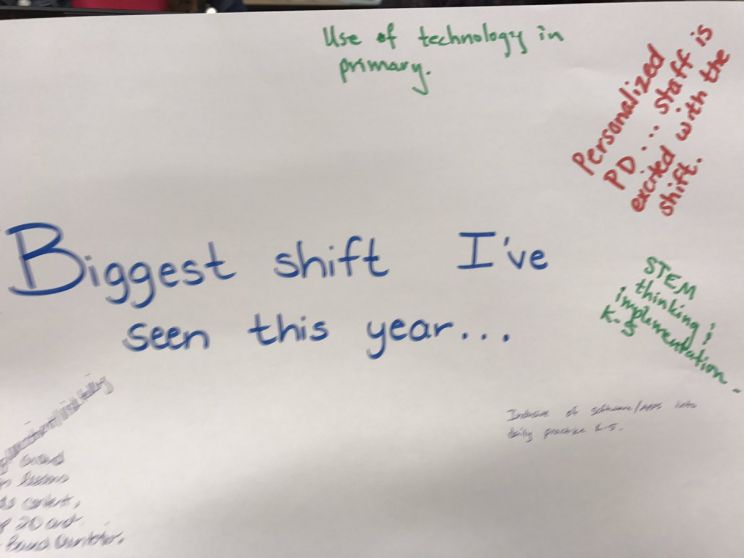 Use of technology in
primary.
Personalized
PD... staff is
excited with the
shift.
Biggest shift I've
seen this year...
STEM
thinking;
implementation.
K-5
of software/apps into
daily practice K-5.
content,